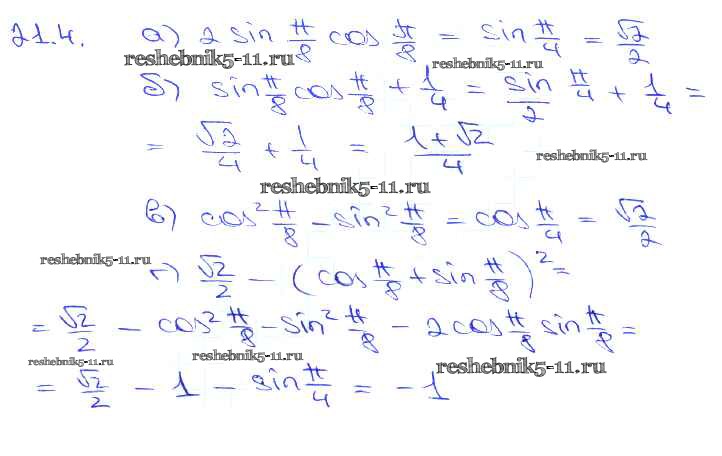 21.4. а) 2 sin π/8 cos π/8 = sin π/4 = √2/2
reshebnik5-11.ru reshebnik5-11.ru
б) sin π/8 cos π/8 + 1/4 = sin/2 π/4 + 1/4 =
= √2/4 + 1/4 = 1+√2/4 reshebnik5-11.ru
reshebnik5-11.ru
в) cos² π/8 - sin² π/8 = cos π/4 = √2/2
reshebnik5-11.ru г) √2/2 - (cos π/8 + sin π/8)² =
= √2/2 - cos² π/8 - sin² π/8 - 2 cos π/8 sin π/8 =
reshebnik5-11.ru reshebnik5-11.ru reshebnik5-11.ru
= √2/2 - 1 - sin π/4 = -1